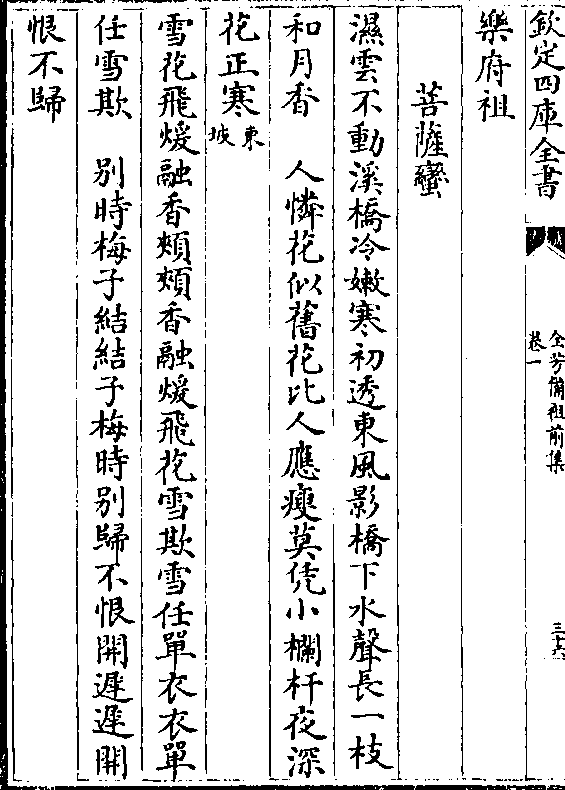 欽定四庫全書
全芳備祖前集
卷一
樂府祖
菩薩蠻
濕雲不動溪橋冷嫩寒初透東風影橋下水聲長一枝
和月香 人憐花似舊花比人應瘦莫凭小欄杆夜深
花正寒 東坡
雪花飛煖融香頰頰香融煖飛花雪欺雪任單衣衣單
任雪欺 別時梅子結結子梅時別歸不恨開遲遲開
恨不歸